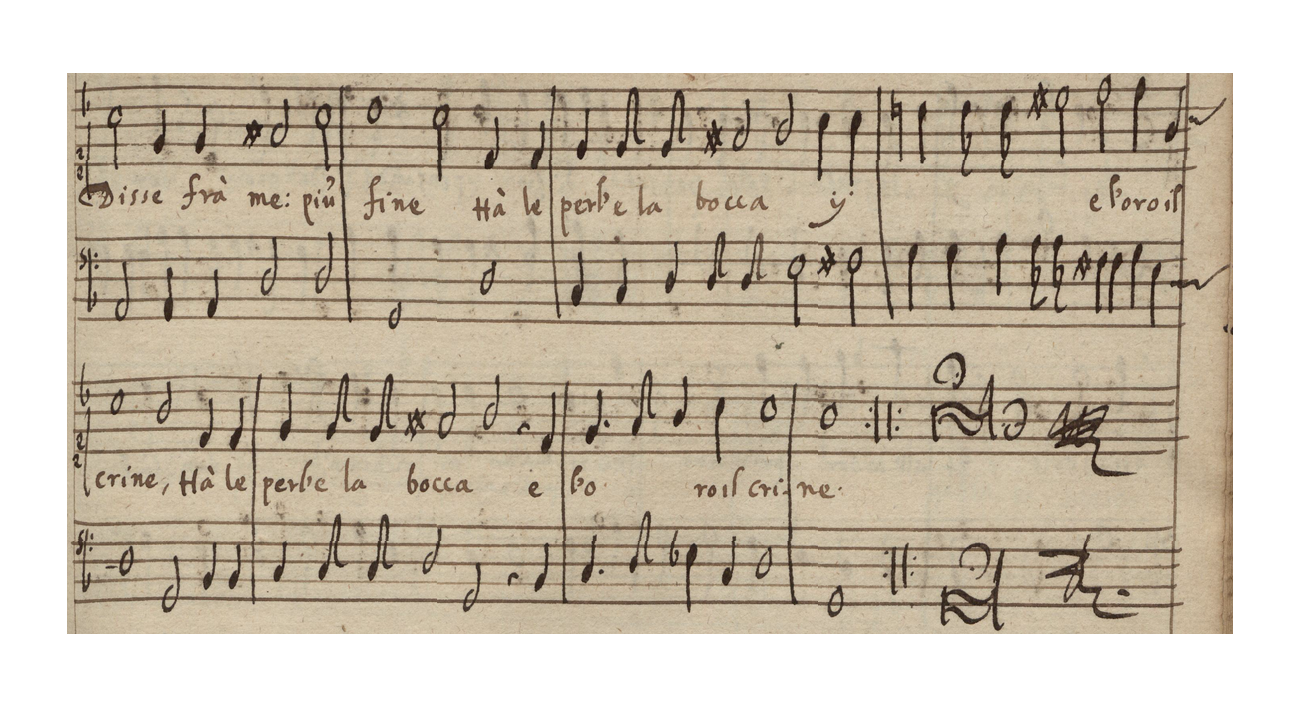 Disse frà me: più fine Hà le perle la bocca ÿ e l'oro il
crine, Hà le perle la bocca e l'o ro il cri ne.